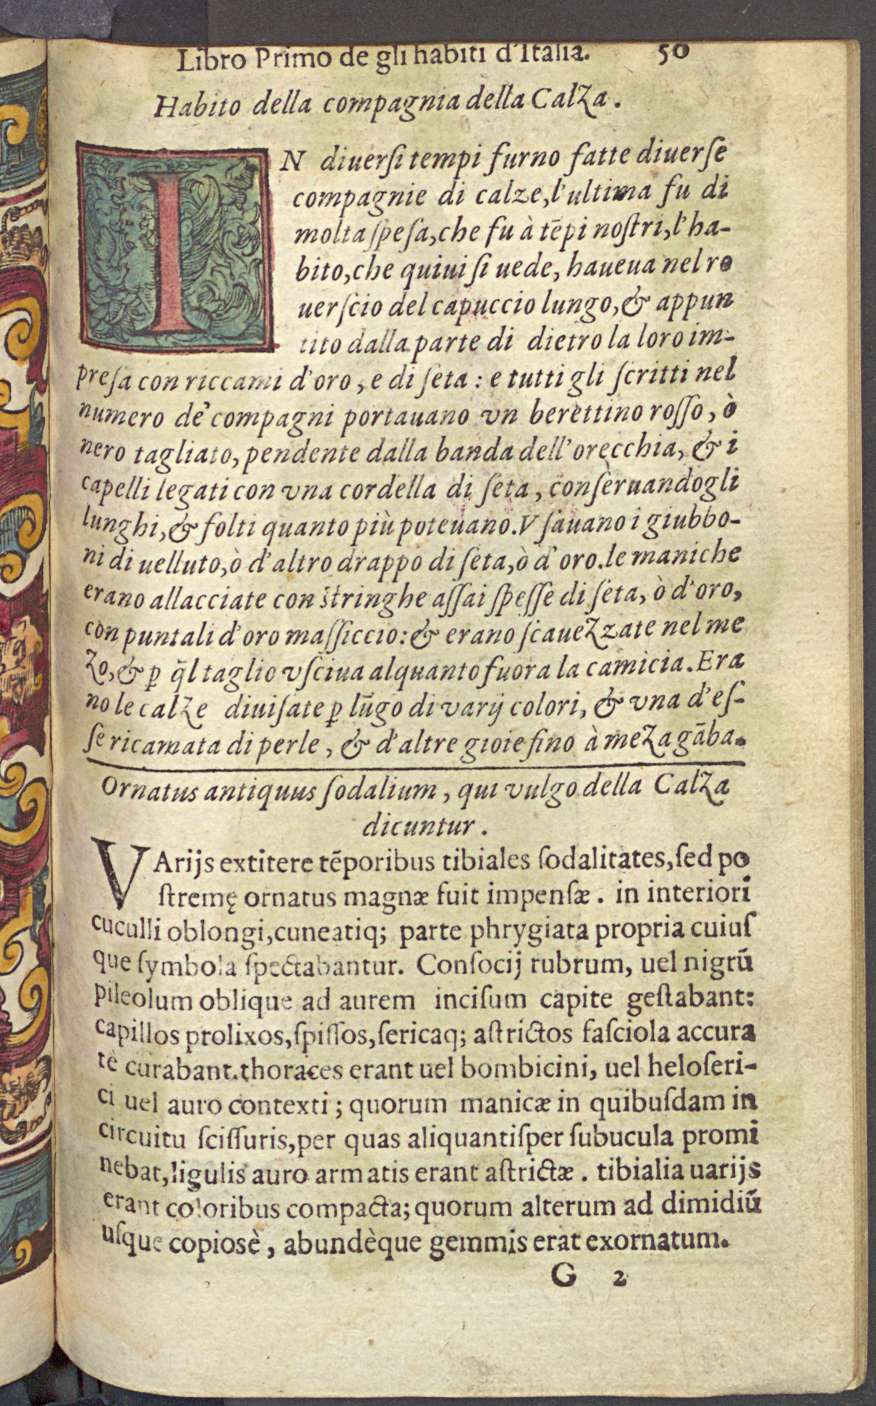 Libro Primo de gli habiti d'Italia. 50
Habito della compagnia della Calza.
IN diuerſi tempi furno fatte diuerſe
compagnie di calze, l'ultima fu di
molta ſpeſa, che fu à tẽpi noſtri, l'ha-
bito, che quiui ſi uede, haueua nel ro
uerſcio del capuccio lungo, & appun
tito dalla parte di dietro la loro im-
preſa con riccami d'oro, e di ſeta: e tutti gli ſcritti nel
numero de' compagni portauano vn berettino roſſo, ò
nero tagliato, pendente dalla banda dell'oręcchia, & i
capelli legati con vna cordella di ſeta, conſeruandogli
lunghi, & folti quanto più poteuano. Vſauano i giubbo-
ni di uelluto, ò d'altro drappo di ſeta, ò d'oro. le maniche
erano allacciate con ſtringhe aſſai ſpeſſe di ſeta, ò d'oro,
con puntali d'oro maſſiccio: & erano ſcauezzate nel me
zo, & ꝑ q̃l taglio vſciua alquanto fuora la camicia. Era
no le calze diuiſate ꝑ lũgo di varij colori, & vna d'eſ-
ſe ricamata di perle, & d'altre gioie fino à meza gãba.
Ornatus antiquus ſodalium, qui vulgo della Calza
dicuntur.
VArijs extitere tẽporibus tibiales ſodalitates, ſed po
ſtremę ornatus magnæ fuit impenſæ. in interiori
cuculli oblongi, cuneatiq; parte phrygiata propria cuiuſ
que ſymbola ſpectabantur. Conſocij rubrum, uel nigrũ
pileolum oblique ad aurem inciſum capite geſtabant:
capillos prolixos, ſpiſſos, ſericaq; aſtrictos faſciola accura
tè curabant. thoraces erant uel bombicini, uel heloſeri-
ci uel auro contexti; quorum manicæ in quibuſdam in
circuitu ſciſſuris, per quas aliquantiſper ſubucula promi
nebat, ligulis auro armatis erant aſtrictæ. tibialia uarijs
erant coloribus compacta; quorum alterum ad dimidiũ
uſque copiosè, abundèque gemmis erat exornatum.
G 2